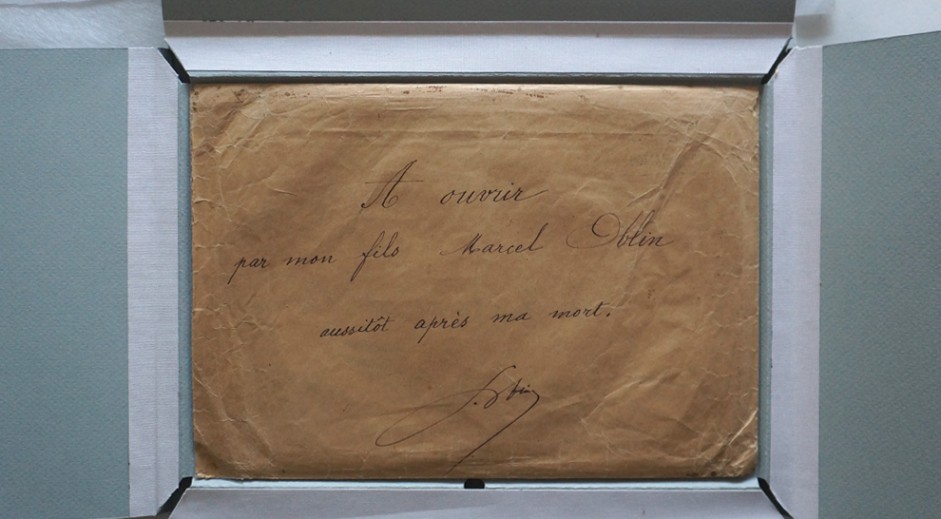 A ouvrir
par mon fils Marcel Oblin
aussitôt après ma mort.